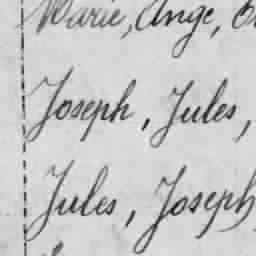 Marie, Ange,
Joseph, Jules,
Jules, Joseph